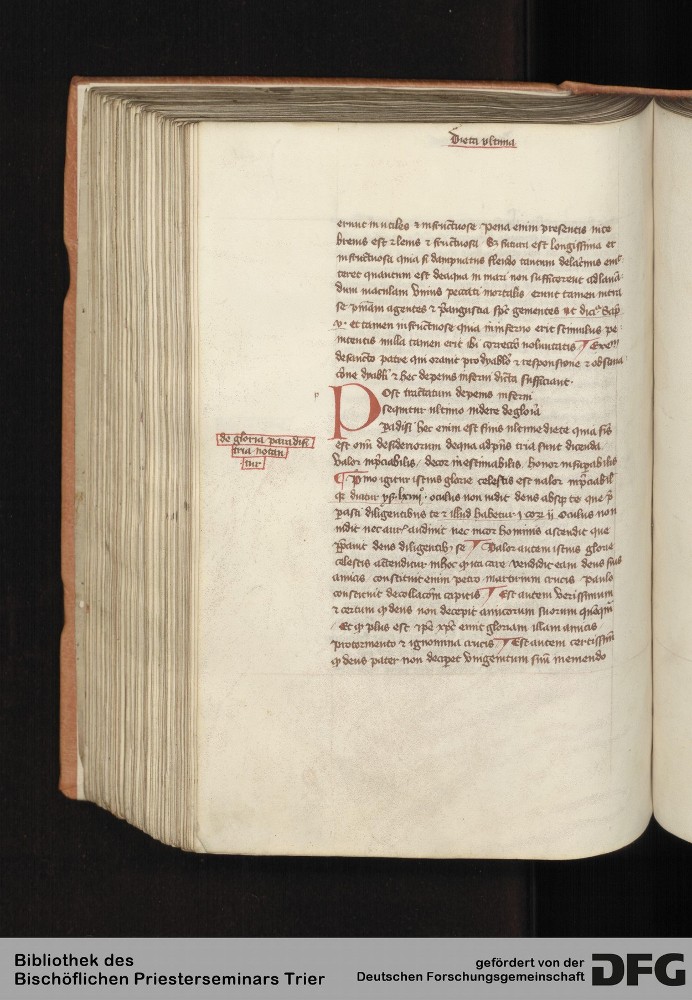 Dieta ultima
erunt inutiles et infructuose Pena enim presentis uite
breuis est et lenis et fructuosa Sed futura est longissima et
infructuosa quia si dampnatus flendo tantum de lacrimis emit
teret quantum est de aqua in mari non sufficerent ad lauan
dum maculam vnius peccati mortalis erunt tamen intra
se penitentiam agentes et pre angustia spiritus gementes ut dicitur Sap
v. et tamen infructuose quia in inferno erit stimulus pe
nitentis nulla tamen erit ibi correctio voluntatis Exemplum
de sancto patre qui orauit pro dyabolo et responsione et obstina
cione dyaboli et hec de penis inferni dicta sufficiant.
Post tractatum de penis inferni
sequitur ultimo uidere de gloria
paradisi hec enim est finis ultime diete quia finis
de gloria paradisi
tria notan
tur
est omnium desideriorum de qua ad presens tria sunt dicenda
valor inpreciabilis decor inestimabilis honor inseparabilis
Primo igitur istius glorie celestis est valor inpreciabilis
quia dicitur ys. lxiiij. oculus non uidit deus absque te que pre
parasti diligentibus te et illud habetur i cor ij Oculus non
uidit nec auris audiuit nec in cor hominis ascendit que
preparauit deus diligentibus se Valor autem istius glorie
celestis attenditur in hoc quia ita care vendidit eam deus suis
amicis constituit enim petro martirium crucis paulo
constituit decollacionem capitis Est autem verissimum
et certum quod deus non decepit amicorum suorum quemquam
Et quod plus est ipse christus emit gloriam illam amicis
pro tormento et ignominia crucis Est autem certissimum
quod deus pater non deciperet vnigenitum suum in emendo
Bibliothek des
Bischöflichen Priesterseminars Trier
gefördert von der
Deutschen Forschungsgemeinschaft
DFG